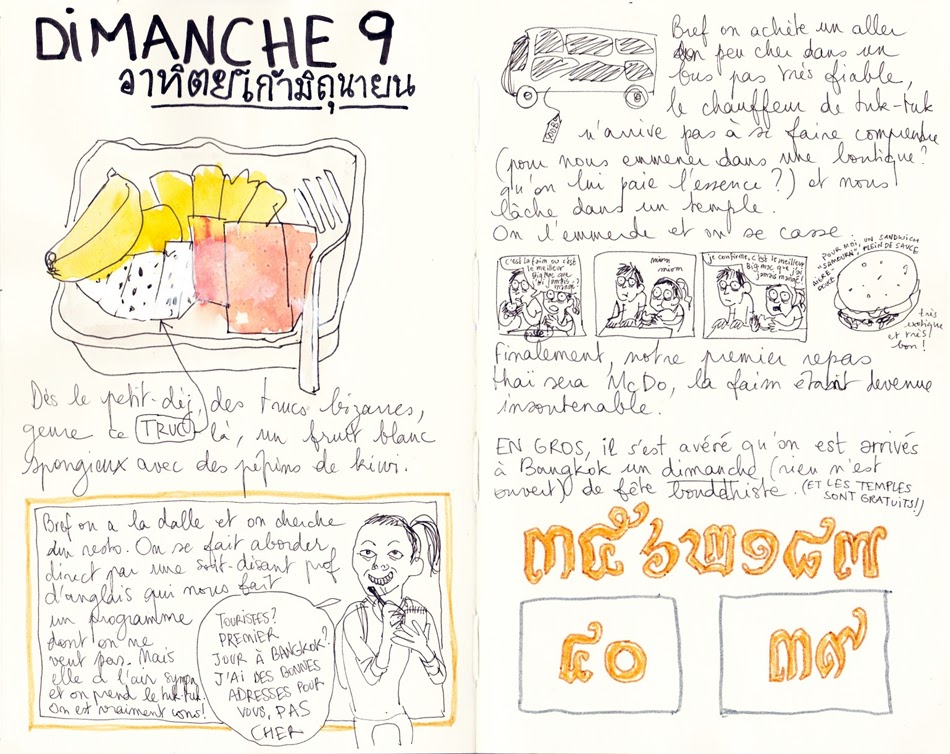 DiMANCHE 9
อาทิตย์เก้ามิถุนายน
Dès le petit-déj, des trucs bizarres,
genre ce TRUC-là, un fruit blanc
spongieux avec des pépins de kiwi.
Bref on a la dalle et on cherche
du resto. On se fait aborder
direct par une soit-disant prof
d'anglais qui nous fait
un programme
dont on ne
veut pas. Mais
elle a l'air sympa
et on prend le tuk-tuk.
On est vraiment cons!
TOURISTES?
PREMIER
JOUR À BANGKOK?
J'AI DES BONNES
ADRESSES POUR
VOUS, PAS
CHER
Bref on achète un aller
peu cher dans un
bus pas très fiable,
le chauffeur de tuk-tuk
n'arrive pas à se faire comprendre
(pour nous emmener dans une boutique?
qu'on lui paie l'essence?) et nous
lâche dans un temple.
On l'emmerde et on se casse.
C'est la faim ou c'est
le meilleur
Big Mac que
j'ai jamais
mangé?
miom
miom
je confirme, c'est le meilleur
Big Mac que j'ai
jamais mangé!
POUR MOI, UN SANDWICH
"SAMOURAÏ", PLEIN DE SAUCE
très
exotique
et très
bon!
Finalement, notre premier repas
thaï sera McDo, la faim étant devenue
insoutenable.
EN GROS, il s'est avéré qu'on est arrivés
à Bangkok un dimanche (rien n'est
ouvert) de fête bouddhiste. (ET LES TEMPLES
SONT GRATUITS!)
๓๕๖๒๑๘๗
๔๐ ๓๙